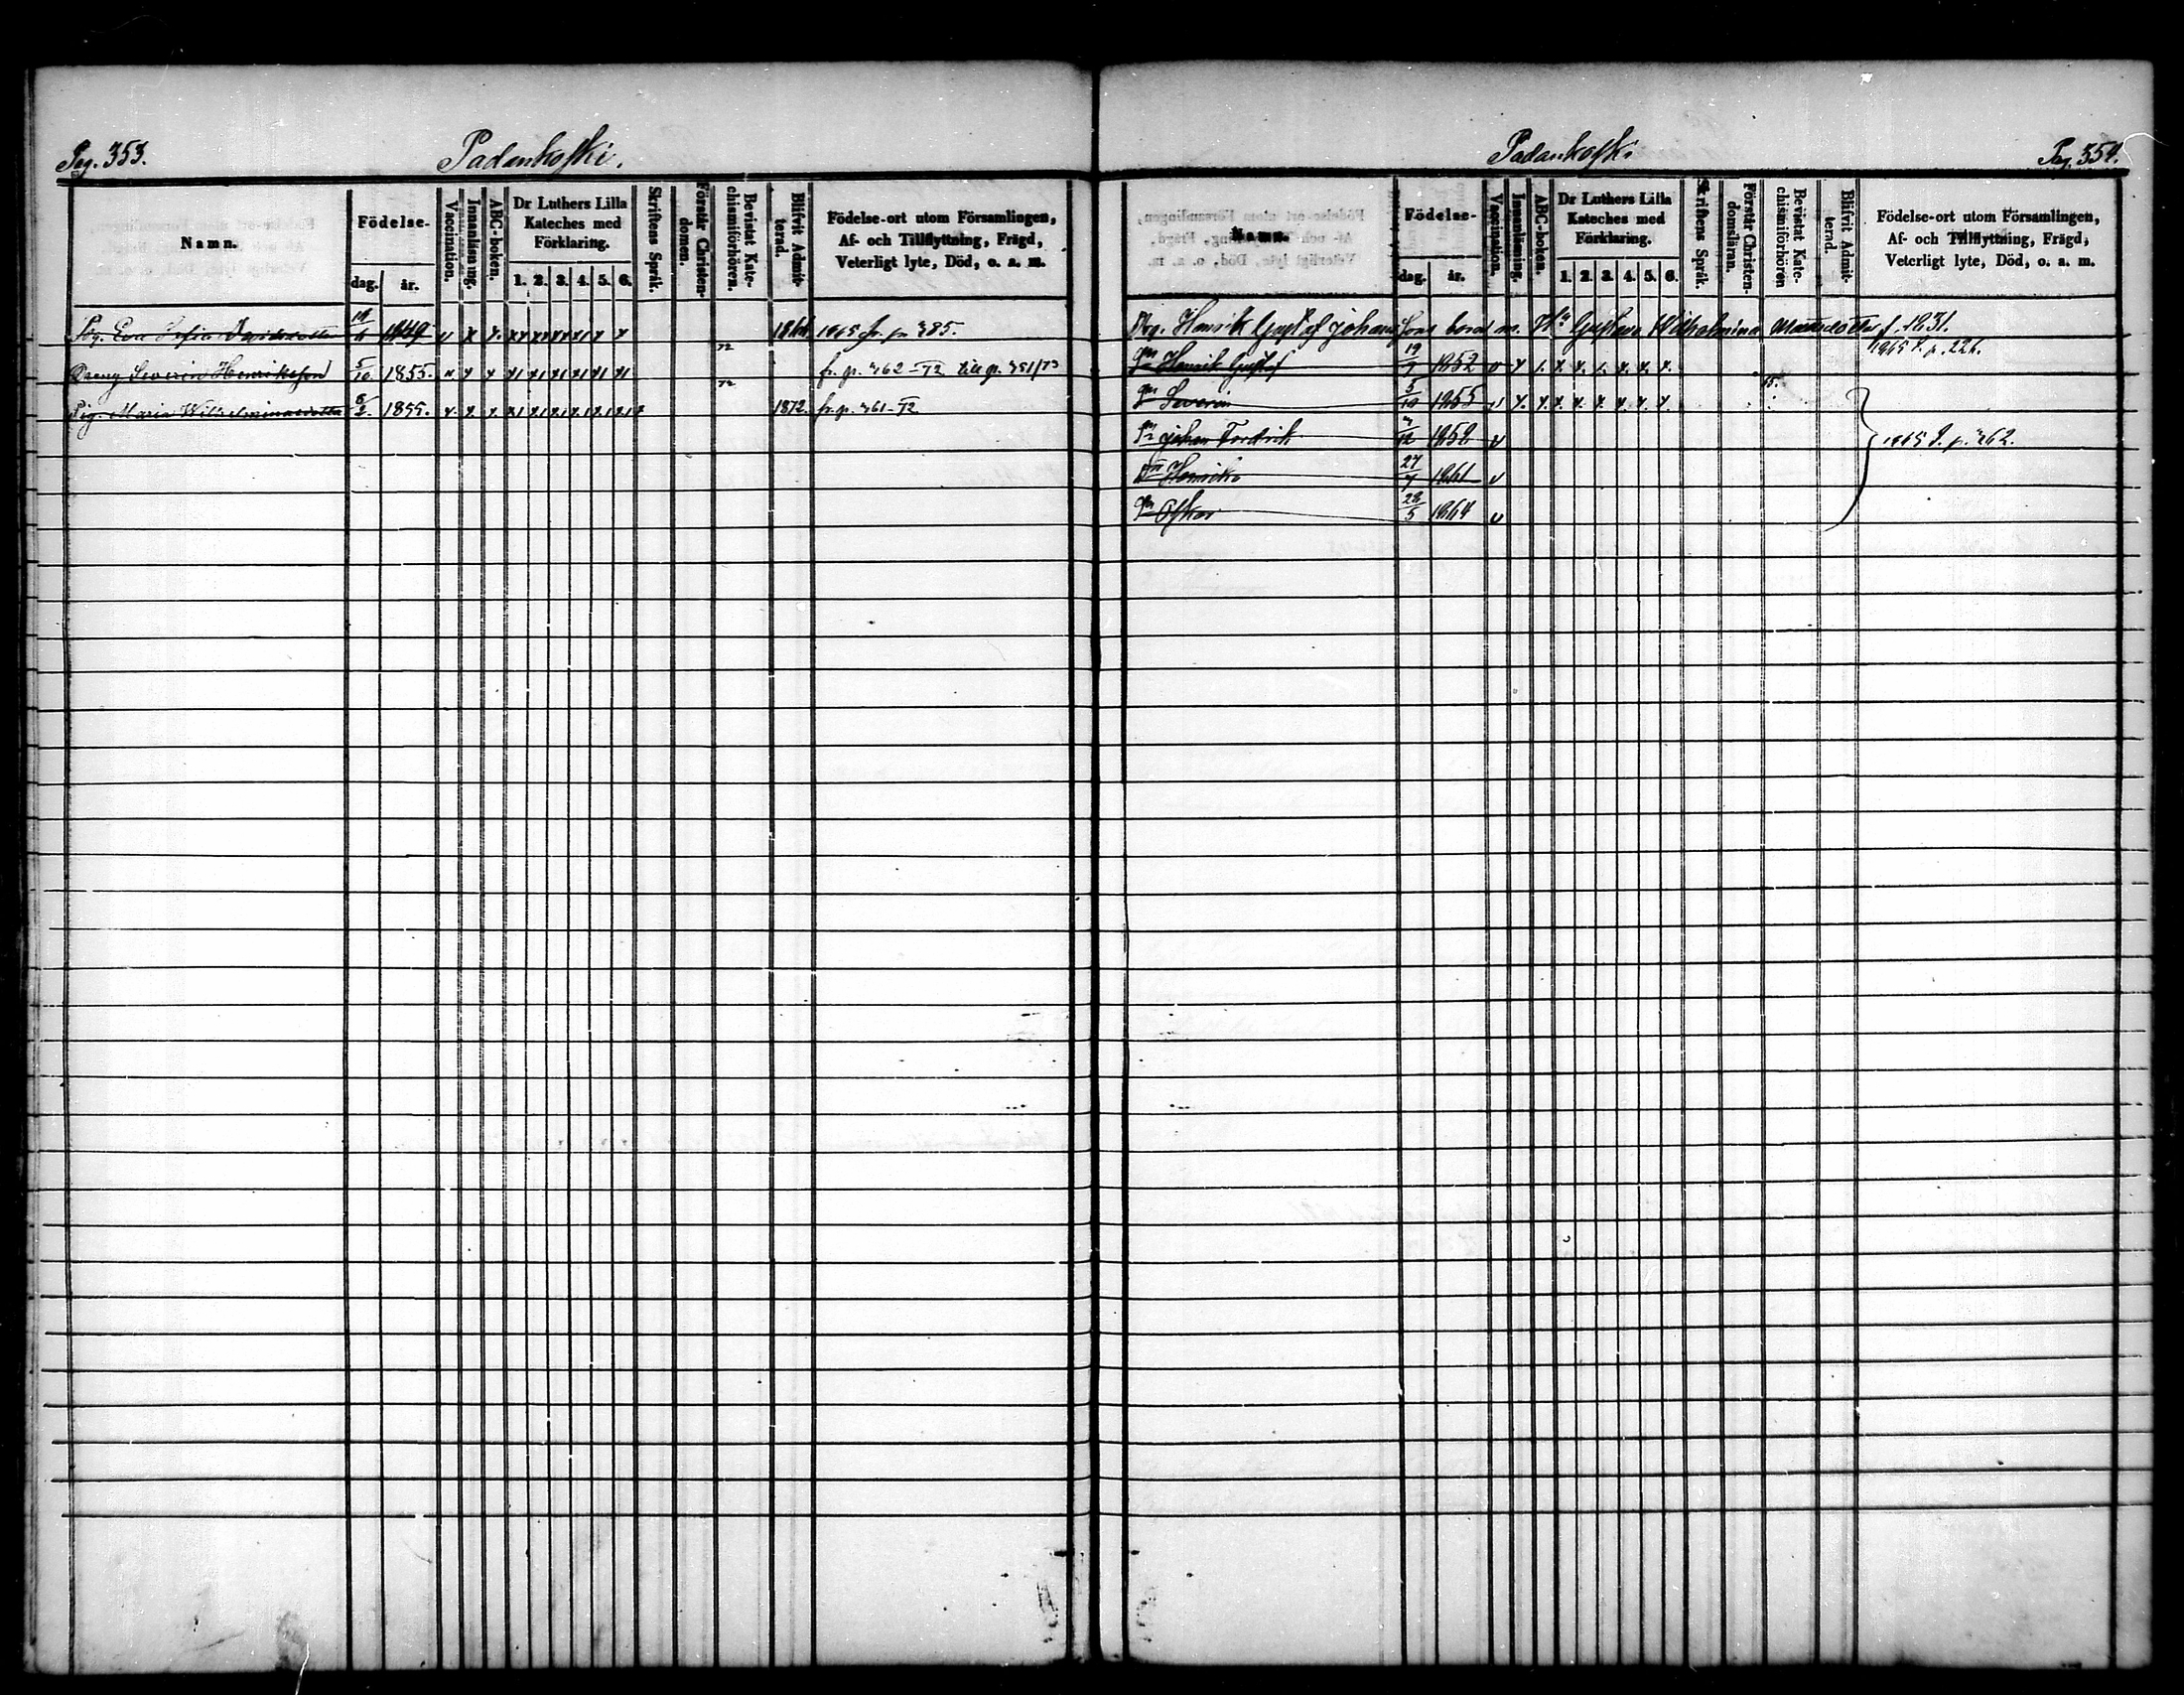 Pag. 353.
Padankoski.
Namn.
Födelse-
dag.
år.
Vaccination.
Innanläsning.
ABC-boken.
Dr Luthers Lilla Kateches med Förklaring.
1. 2. 3. 4. 5. 6.
Skriftens Språk.
Förstår Christen-domen.
Bevistat Kate-chismiförhören.
Blifvit Admit-terad.
Födelse-ort utom Församlingen,
Af- och Tillflyttning, Frägd,
Veterligt lyte, Död, o. a. m.
Pig. Eva Sofia Davidsdotter 1849 1865 fr. p. 385.
Dreng Severin Henriksson 5/10 1855. fr. p. 362-72 till p. 351/73
Pig. Maria Wilhelminasdotter 1855. 1872. fr. p. 361-72
Padankoski
Pag. 354.
Namn.
Födelse-
dag.
år.
Vaccination.
Innanläsning.
ABC-boken.
Dr Luthers Lilla Kateches med Förklaring.
1. 2. 3. 4. 5. 6.
Skriftens Språk.
Förstår Christen-domsläran.
Bevistat Kate-chismiförhören
Blifvit Admit-terad.
Födelse-ort utom Församlingen,
Af- och Tillflyttning, Frägd,
Veterligt lyte, Död, o. a. m.
Henrik Gustaf Johans Sons barn m. Gustava Wilhelmina Mattsdotter f. 1831.
Henrik Gustaf 1852 1865 p. 226.
Severin 5/10 1855
Johan Fredrik 1858 1865 p. 362.
Henrika 27 1861
Oskar 28/5 1864